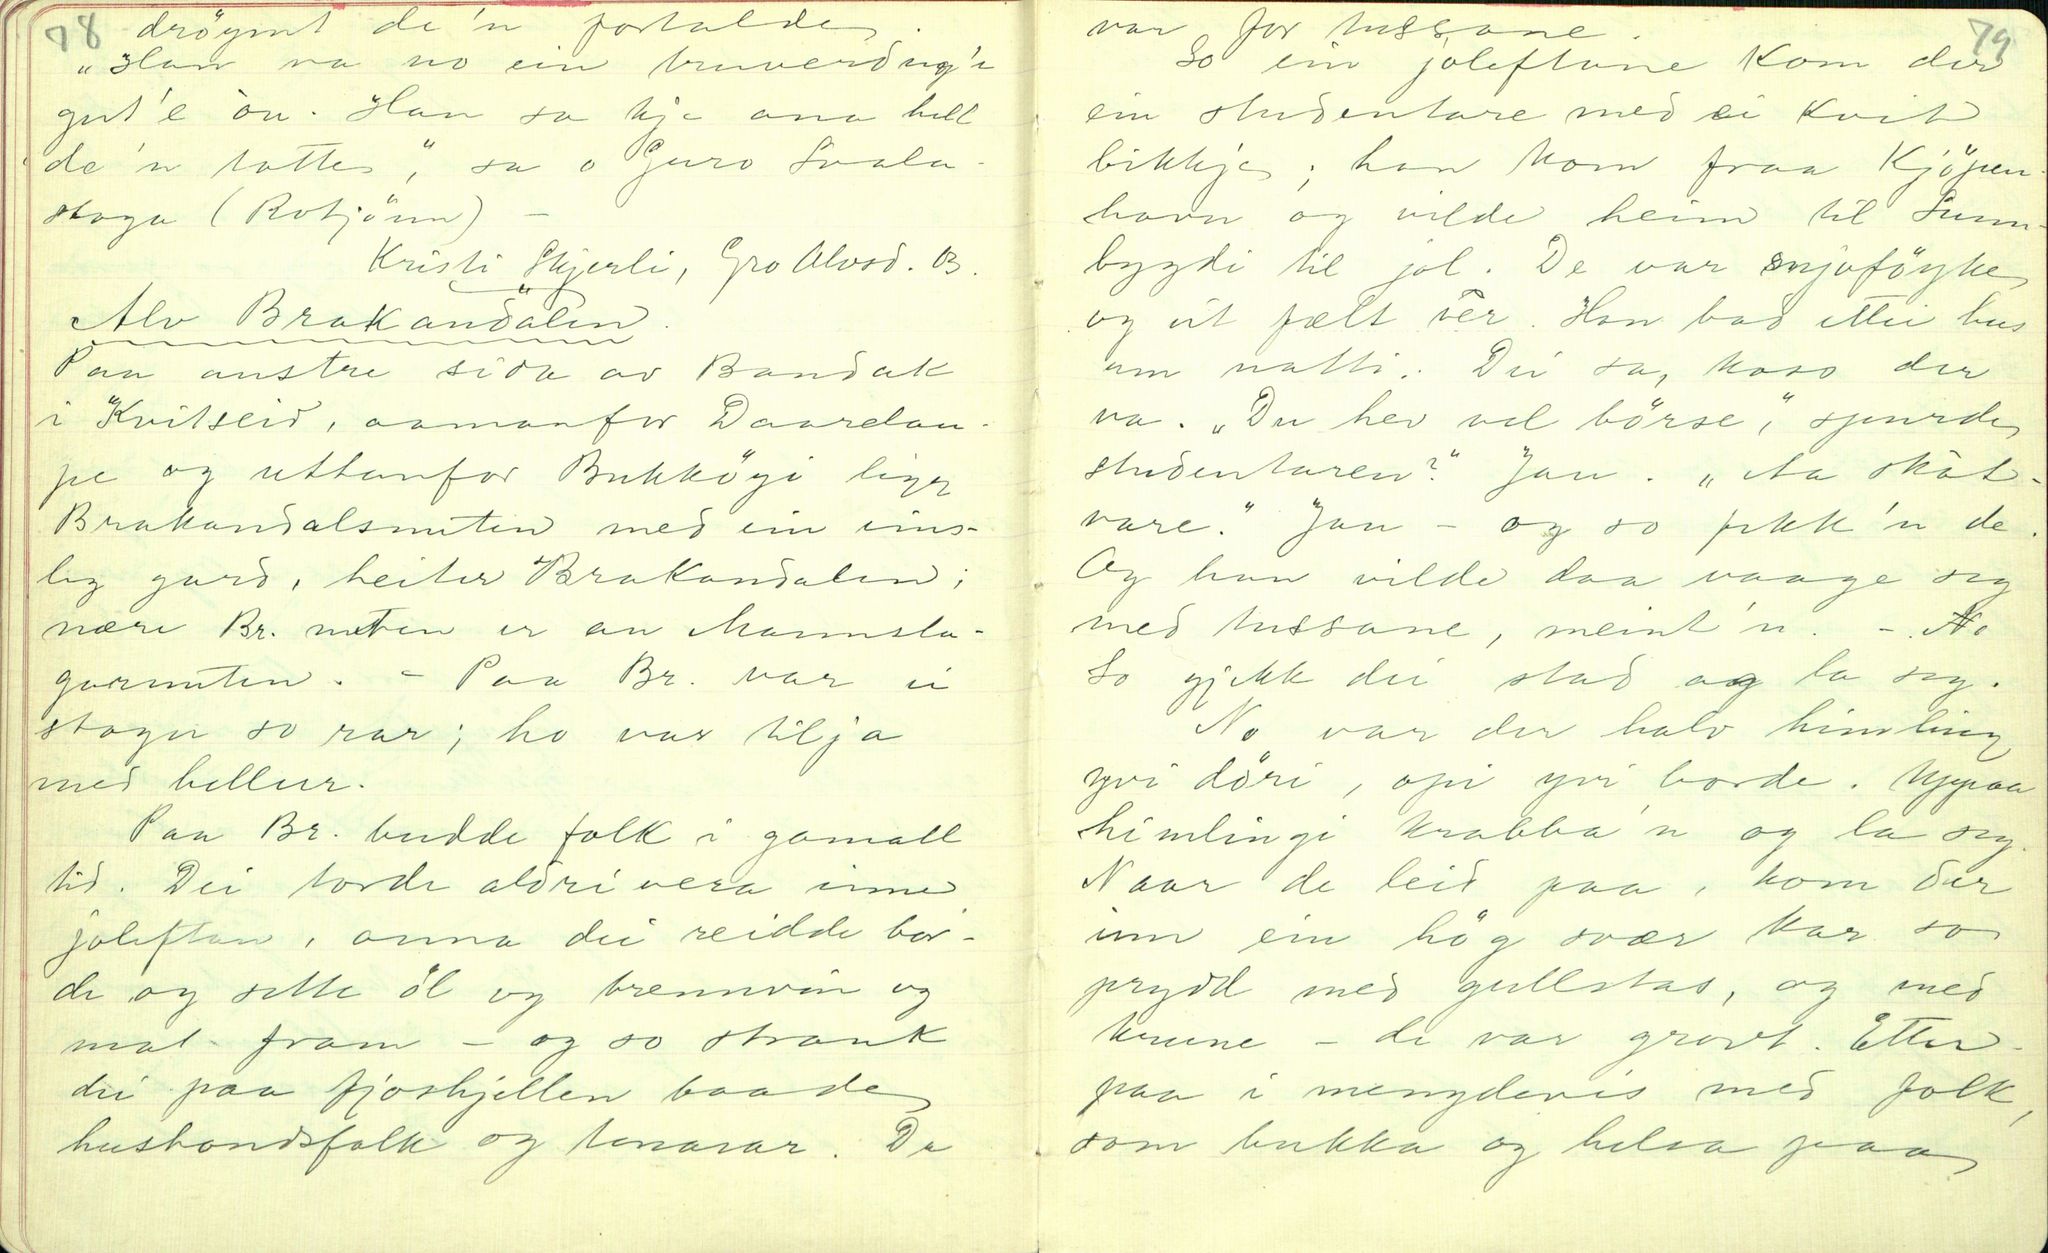 78
drøymt de'n fortalde.
"Han va no ein truverdug'e
gut'e òn. Han sa kje ana hell
de'n totte," sa o Guro Svala-
stoga (Rotjönn) –
Kristi Skjerli, Gro Alvsd. B.
Alv Brakandalen.
Paa austre sida av Bandak
i Kvitseid, aamanfor Daarelau-
pe og uttanfor Bukköyi ligg
Brakandalsnuten med ein eins-
lig gard, heiter Brakandalen;
nære Br. nuten er an Mannsla-
garnuten. – Paa Br. var ei
stoga so rar; ho var tilja
med hellur.
Paa Br. budde folk i gamall
tid. Dei torde aldri vera inne
joleftan, anna dei reidde bor-
de og sette öl og brennvin og
mat fram – og so strauk
dei paa fjoshjellen baade
husbondsfolk og tenarar. De
79
var for tussane.
So ein joleftane kom der
ein studentare med ei kvit
bikkje; han kom fraa Kjöpen-
havn og vilde heim til Sunn-
bygdi til jol. De var snjoföyke
og eit fælt vêr. Han bad ettei hus
um natti. Dei sa, koso der
va. "Du hev vel börse," spurde
studentaren?" Jau. "Aa skòt-
vare." Jau – og so fekk'n de.
Og han vilde daa vaage seg
med tussane, meint'n. –
So gjekk dei stad og la seg.
No var der halv himling
yvi döri, opi yvi borde. Uppaa
himlingi krabba'n og la seg.
Naar de leid paa, kom der
inn ein hög svær kar so
prydd med gullstas, og med
krune – de var grovt. Etter-
paa i mengdevis med folk,
som bukka og helsa paa